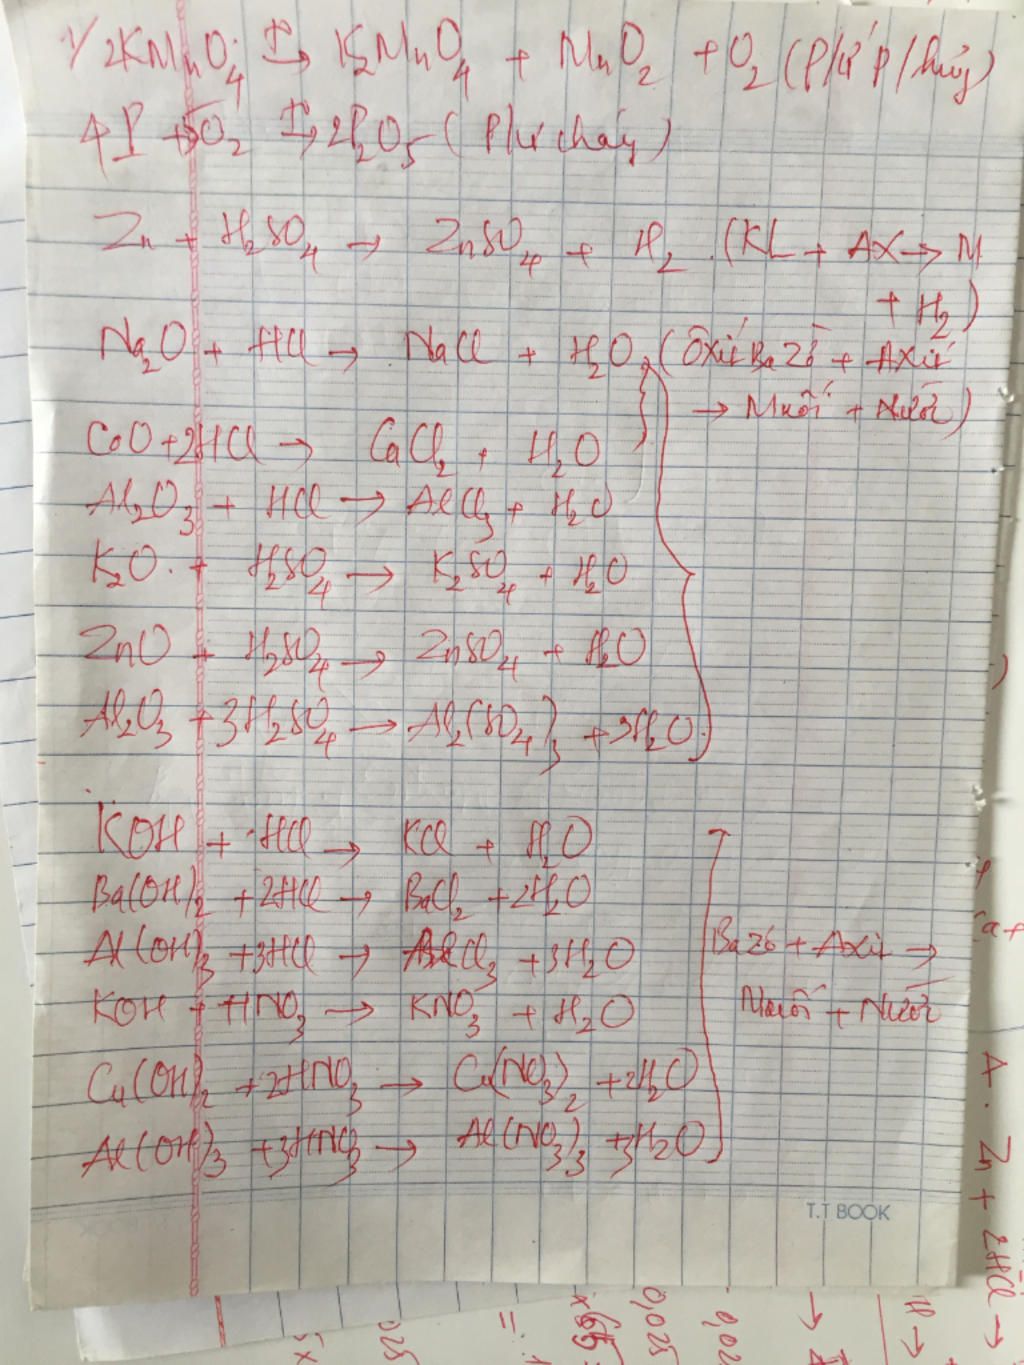 1/ 2KMnO4 t° → K2MnO4 + MnO2 + O2 (P/ứ P/hủy)
4P + 5O2 t° → 2P2O5 ( P/ứ cháy)
Zn + H2SO4 → ZnSO4 + H2 (KL + AX → M
+ H2)
Na2O + HCl → NaCl + H2O (Ôxít BaZơ + Axít
→ Muối + Nước)
CaO + 2HCl → CaCl2 + H2O
Al2O3 + HCl → AlCl3 + H2O
K2O + H2SO4 → K2SO4 + H2O
ZnO + H2SO4 → ZnSO4 + H2O
Al2O3 + 3H2SO4 → Al2(SO4)3 + 3H2O
KOH + HCl → KCl + H2O
Ba(OH)2 + 2HCl → BaCl2 + 2H2O
Al(OH)3 + 3HCl → AlCl3 + 3H2O
Bazơ + Axit →
KOH + HNO3 → KNO3 + H2O
Muối + Nước
Cu(OH)2 + 2HNO3 → Cu(NO3)2 + 2H2O
Al(OH)3 + 3HNO3 → Al(NO3)3 + 3H2O
T.T BOOK
A. Zn + 2HCl →
0,025